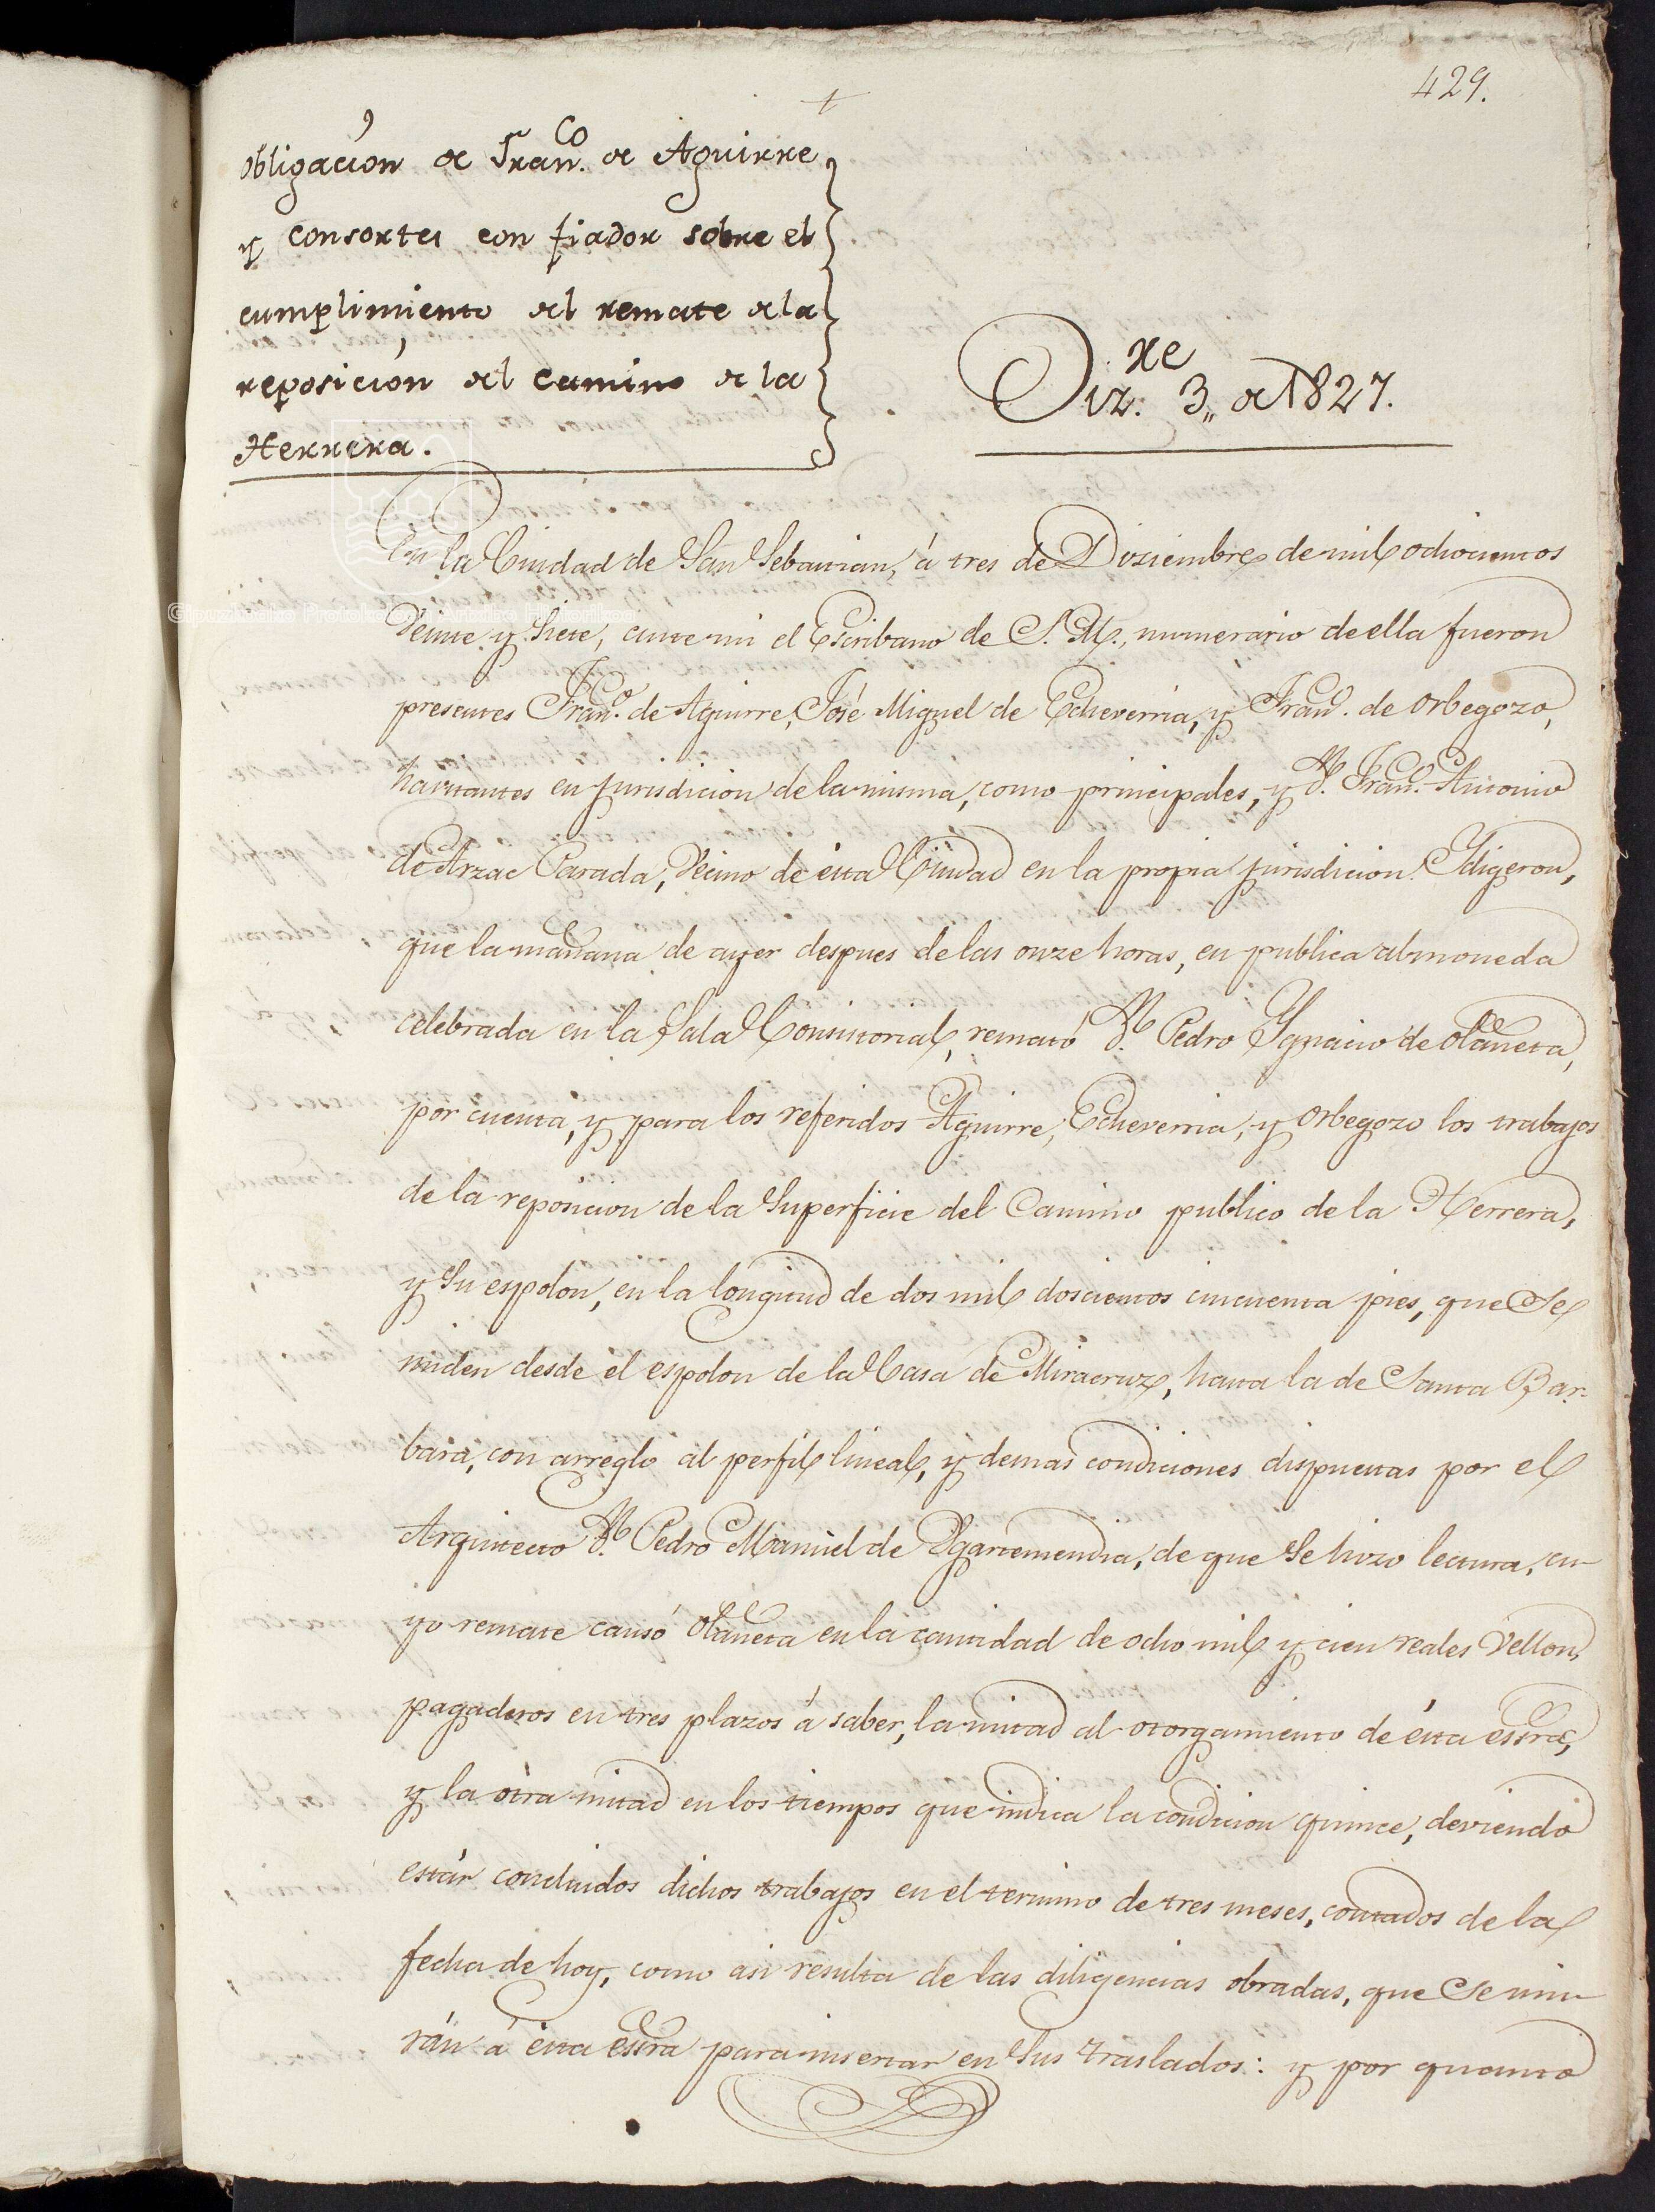 429.
+
Obligación de Fran.co de Aguirre
y consortes con fiador sobre el
cumplimiento del remate de la
reposición del camino de la
Herrera.
Diz.re 3,, de 1827.
En la Ciudad de San Sebastian, á tres de Diziembre de mil ochocientos
Veinte y Siete, ante mi el Escribano de S. M., numerario de ella fueron
presentes Fran.co de Aguirre, José Miguel de Echeverria, y Fran.co de Orbegozo,
havitantes en jurisdicion de la misma, como principales, y D.n Fran.co Antonio
de Arzac Parada, Vecino de ésta Ciudad en la propia jurisdicion. Y digeron,
que la mañana de ayer despues de las onze horas, en publica almoneda
celebrada en la Sala Consistorial, remató D.n Pedro Ygnacio de Olañeta,
por cuenta, y para los referidos Aguirre, Echeverria, y Orbegozo los trabajos
de la reposicion de la Superficie del Camino publico de la Herrera,
y Su espolon, en la longitud de dos mil doscientos cincuenta pies, que Se
miden desde el espolon de la Casa de Miracruz, hasta la de Santa Bar-
bara, con arreglo al perfil lineal, y demas condiciones dispuestas por el
Arquitecto D.n Pedro Manuel de Ugartemendia, de que Se hizo lectura, cu-
yo remate causó Olañeta en la cantidad de ocho mil y cien reales Vellon,
pagaderos en tres plazos á saber, la mitad al otorgamiento de ésta essra,
y la otra mitad en los tiempos que indica la condicion quince, deviendo
estár concluidos dichos trabajos en el termino de tres meses, contados de la
fecha de hoy, como asi resulta de las diligencias obradas, que Se uni-
rán á ésta essra para insertar en Sus traslados: y por quanto
Gipuzkoako Protokoloen Artxibo Historikoa